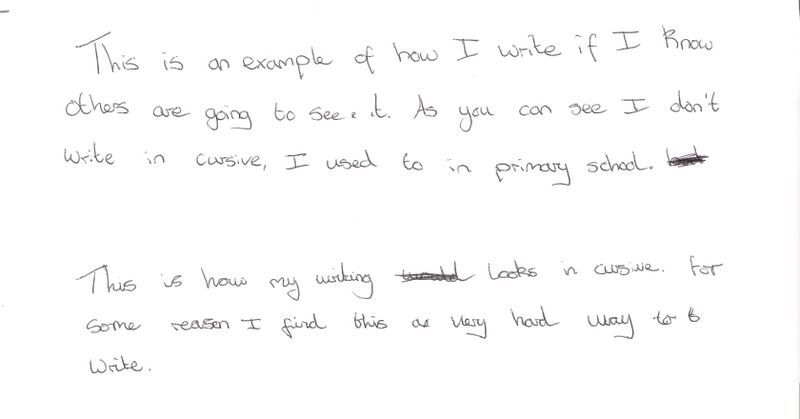 This is an example of how I write if I know
others are going to see it. As you can see I don't
write in cursive, I used to in primary school.
This is how my writing looks in cursive. For
some reason I find this a very hard way to
write.